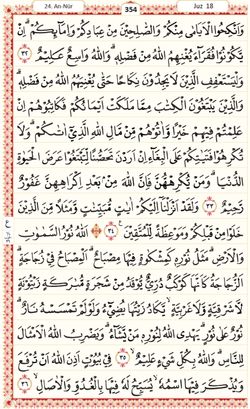 24. An-Nūr
354
Juz 18
وَأَنْكِحُوا الْأَيَامٰى مِنْكُمْ وَالصّٰلِحِيْنَ مِنْ عِبَادِكُمْ وَإِمَآئِكُمْ ۚ إِنْ
يَّكُوْنُوْا فُقَرَآءَ يُغْنِهِمُ اللّٰهُ مِنْ فَضْلِهٖ ۗ وَاللّٰهُ وَاسِعٌ عَلِيْمٌ ٣٢
وَلْيَسْتَعْفِفِ الَّذِيْنَ لَا يَجِدُوْنَ نِكَاحًا حَتّٰى يُغْنِيَهُمُ اللّٰهُ مِنْ فَضْلِهٖ ۗ
وَالَّذِيْنَ يَبْتَغُوْنَ الْكِتٰبَ مِمَّا مَلَكَتْ أَيْمَانُكُمْ فَكَاتِبُوْهُمْ إِنْ
عَلِمْتُمْ فِيْهِمْ خَيْرًا ۖ وَّاٰتُوْهُمْ مِّنْ مَّالِ اللّٰهِ الَّذِيْٓ اٰتٰىكُمْ ۚ وَلَا
تُكْرِهُوْا فَتَيٰتِكُمْ عَلَى الْبِغَآءِ إِنْ أَرَدْنَ تَحَصُّنًا لِّتَبْتَغُوْا عَرَضَ الْحَيٰوةِ
الدُّنْيَا ۚ وَمَنْ يُّكْرِهْهُّنَّ فَإِنَّ اللّٰهَ مِنْۢ بَعْدِ إِكْرَاهِهِنَّ غَفُوْرٌ
رَّحِيْمٌ ٣٣ وَلَقَدْ أَنْزَلْنَآ إِلَيْكُمْ اٰيٰتٍ مُّبَيِّنٰتٍ وَّمَثَلًا مِّنَ الَّذِيْنَ
خَلَوْا مِنْ قَبْلِكُمْ وَمَوْعِظَةً لِّلْمُتَّقِيْنَ ٣٤ اَللّٰهُ نُوْرُ السَّمٰوٰتِ
وَالْأَرْضِ ۚ مَثَلُ نُوْرِهٖ كَمِشْكٰوةٍ فِيْهَا مِصْبَاحٌ ۗ اَلْمِصْبَاحُ فِيْ زُجَاجَةٍ ۗ
اَلزُّجَاجَةُ كَأَنَّهَا كَوْكَبٌ دُرِّيٌّ يُّوْقَدُ مِنْ شَجَرَةٍ مُّبٰرَكَةٍ زَيْتُوْنَةٍ
لَّا شَرْقِيَّةٍ وَّلَا غَرْبِيَّةٍ ۙ يَّكَادُ زَيْتُهَا يُضِيْٓءُ وَلَوْ لَمْ تَمْسَسْهُ نَارٌ ۗ
نُوْرٌ عَلٰى نُوْرٍ ۗ يَهْدِى اللّٰهُ لِنُوْرِهٖ مَنْ يَّشَآءُ ۗ وَيَضْرِبُ اللّٰهُ الْأَمْثَالَ
لِلنَّاسِ ۗ وَاللّٰهُ بِكُلِّ شَيْءٍ عَلِيْمٌ ٣٥ فِيْ بُيُوْتٍ أَذِنَ اللّٰهُ أَنْ تُرْفَعَ
وَيُذْكَرَ فِيْهَا اسْمُهٗ ۙ يُسَبِّحُ لَهٗ فِيْهَا بِالْغُدُوِّ وَالْاٰصَالِ ٣٦